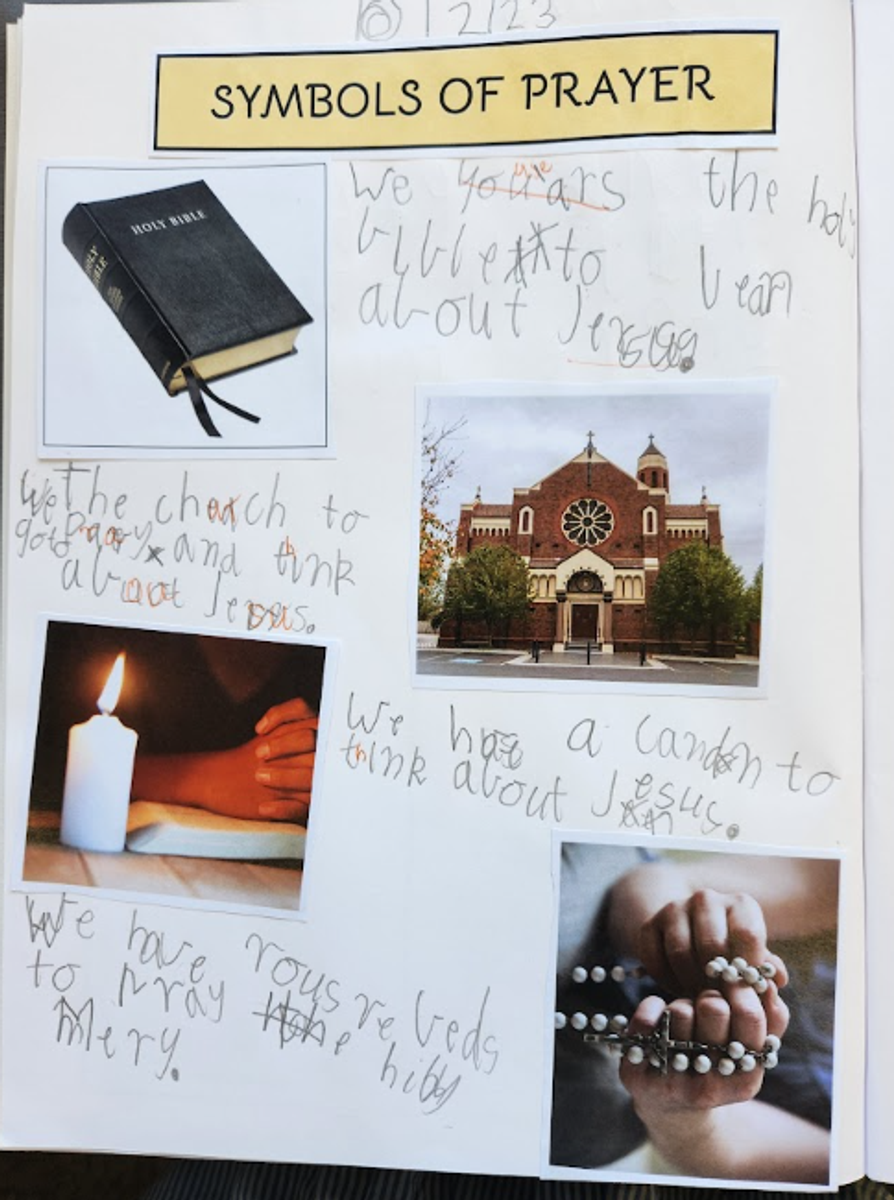 12/23
SYMBOLS OF PRAYER
HOLY BIBLE
HOLY BIBLE
We use the holy
bible to learn
about
We The church to
go to pray and think
about Jesus.
We have a candn to
think about Jesus.
We have rousre beds
to pray the
Mery.